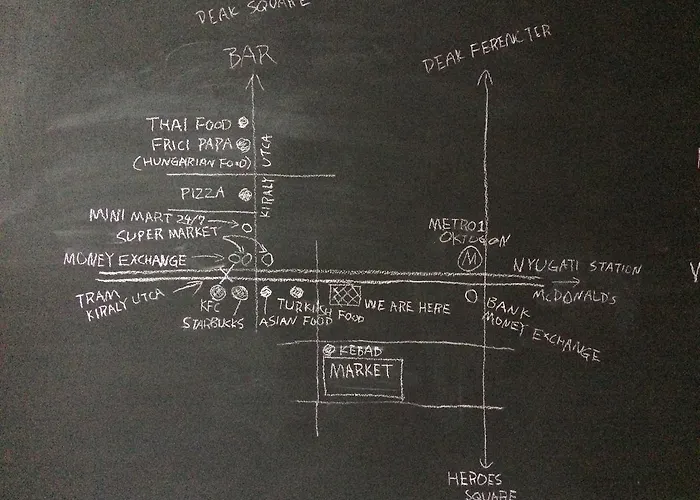 DEAK SQUARE
BAR
DEAK FERENC TER
THAI FOOD
FRICI PAPA
(HUNGARIAN FOOD)
KIRALY UTCA
PIZZA
MINI MART 24/7
SUPER MARKET
MONEY EXCHANGE
METRO1
OKTOGON
M
NYUGATI STATION
MCDONALD'S
TRAM
KIRALY UTCA
KFC
STARBUCKS
ASIAN FOOD
TURKISH FOOD
WE ARE HERE
BANK
MONEY EXCHANGE
KEBAD
MARKET
HEROES
SQUARE